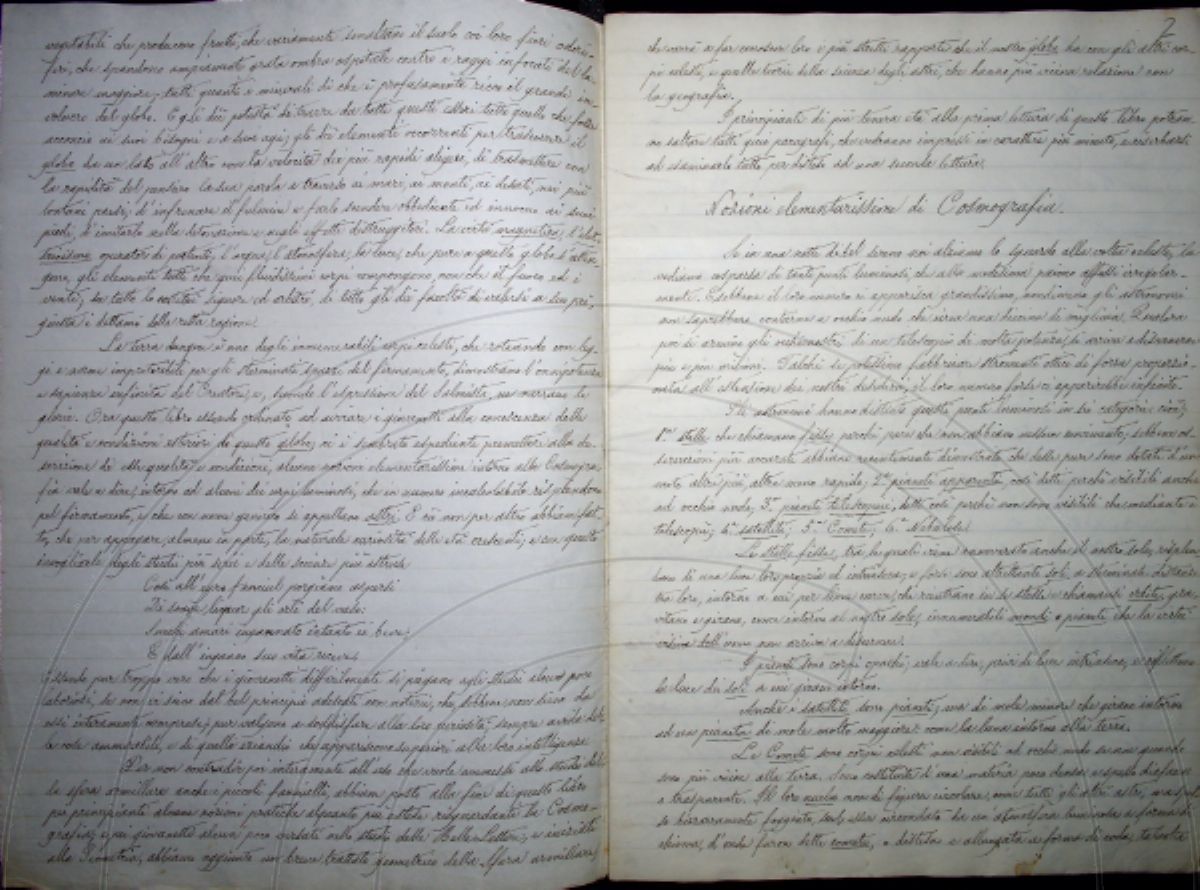 vegetabili che producono frutti, che variamente smaltano il suolo coi loro fiori odori-
feri, che spandono ampiamente grata ombra ospitale contro i raggi infocati del lu-
minare maggiore; tutti quanti i minerali di che è profusamente ricco il grande in-
volucro del globo. Egli diè potestà di trarre da tutti questi esseri tutto quello che fosse
acconcio ai suoi bisogni e a suoi agi; gli diè elementi occorrenti per trascorrere il
globo da un lato all'altro con la velocità dei più rapidi aligeri, di trasmettere con
la rapidità del pensiero la sua parola a traverso ai mari, ai monti, ai deserti, nei più
lontani paesi; d'infrenare il fulmine e farlo scendere obbediente ed innocuo ai suoi
piedi, d'imitarlo nella detonazione e negli effetti distruggitori. La virtù magnetica, l'elet-
tricismo operatori di portenti, l'acqua, l'atmosfera, la luce, che pure a questo globo s'attin-
gono, gli elementi tutti che quei fluidissimi corpi compongono, non che il fuoco ed i
venti, su tutto lo costituì signore ed arbitro, di tutto gli diè facoltà di valersi a suo prò,
giusta i dettami della retta ragione.
La terra dunque è uno degli innumerabili corpi celesti, che rotando con leg-
gi e norme impreteribili per gli sterminati spazii del firmamento, dimostrano l'onnipotenza
e sapienza infinita del Creatore, e, secondo l'espressione del Salmista, ne narrano le
glorie. Ora questo libro essendo ordinato ad avviare i giovanetti alla conoscenza delle
qualità e condizioni esteriori di questo globo, ci è sembrato espediente premettere alla de-
scrizione di esse qualità e condizioni, alcune nozioni elementarissime intorno alla Cosmogra-
fia vale a dire, intorno ad alcuni dei corpi luminosi, che in numero incalcolabile risplendono
pel firmamento, e che con nome generico si appellano astri. E ciò non per altro abbiam fat-
to, che per appagare, almeno in parte, la naturale curiosità delle età crescenti; e con questo
invogliarle degli studii più serii e delle scienze più astruse
Così all'egro fanciul porgiamo aspersi
Di soave liquor gli orli del vaso:
Succhi amari ingannato intanto ei beve;
E dall'inganno suo vita riceve,
Essendo pur troppo vero che i giovanetti difficilmente si piegano agli studii alcun poco
laboriosi, se non in sino dal bel principio adescati con notizie, che, sebbene non sieno da
essi interamente comprese, pur valgono a soddisfare alla loro curiosità, sempre avida delle
le cose ammirabili, e di quelle eziandio che appariscono superiori alla loro intelligenza.
Per non contradir poi interamente all'uso che vuole ammessi allo studio della
la sfera armillare anche i piccoli fanciulli, abbiam posto alla fine di questo libro
pei principianti alcune nozioni pratiche alquanto più estese risguardanti la Cosmo-
grafia; e pei giovanetti alcun poco versati nello studio delle Belle Lettere, e iniziati
alla Geometria, abbiamo aggiunto un breve trattato geometrico della Sfera armillare,
2
che varrà a far conoscer loro i più stretti rapporti che il nostro globo ha con gli altri cor-
pi celesti, e quelle teorie della scienza degli astri, che hanno più vicina relazione con
la geografia.
I principianti di più tenera età alla prima lettura di questo libro potran-
no saltare tutti quei paragrafi, che vedranno impressi in carattere più minuto, e riserbarsi
ad esaminarle tutte per intero ad una seconda lettura.
Nozioni elementarissime di Cosmografia.
Se in una notte di bel sereno noi alziamo lo sguardo alla volta celeste, la
vediamo cosparsa di tanti punti luminosi, che alla moltitudine paiono affatto irregolar-
mente. E sebbene il loro numero ci apparisca grandissimo, nondimeno gli astronomi
non saprebbero contarne a occhio nudo che circa una decina di migliaia. Qualora
poi si armino gli occhi nostri di un telescopio di molta potenza, si arriva a discernerne
più e più milioni. Talchè se potessimo fabbricare strumenti ottici di forza proporzio-
nata all'estensione dei nostri desiderii, il loro numero forse ci apparirebbe infinito.
Gli astronomi hanno distinto questi punti luminosi in sei categorie cioè;
1.° stelle che chiamano fisse, perchè pare che non abbiano nessun movimento, sebbene os-
servazioni più accurate abbiano recentemente dimostrato che delle pure sono dotate d'un
moto altre più, altre meno rapido; 2.° pianeti apparenti così detti perchè visibili anche
ad occhio nudo; 3.° pianeti telescopici, detti così perchè non sono visibili che mediante i
telescopii; 4.° satelliti; 5.° Comete; 6.° Nebulose.
Le stelle fisse, tra le quali viene annoverato anche il nostro sole, risplen-
dono di una luce loro propria ed intrinseca; e forse sono altrettanti soli, a sterminate distanze
tra loro, intorno a cui per linee curve, che rientrano in se stesse e chiamansi orbite, gra-
vitano e girano, come intorno al nostro sole, innumerabili mondi o pianeti che la virtù
visiva dell'uomo non arriva a discernere.
I pianeti sono corpi opachi; vale a dire, privi di luce intrinseca, e riflettono
la luce dei soli a cui girano intorno.
Anche i satelliti sono pianeti, ma di mole minore che girano intorno
ad un pianeta di mole molto maggiore: come la luna intorno alla terra.
Le Comete sono corpi celesti non visibili ad occhio nudo se non quando
sono più vicine alla terra. Sono costituite d'una materia poco densa e spesso diafana
e trasparente. Il loro nucleo non di figura circolare, come tutti gli altri astri, ma
bizzarramente foggiato, suol esser circondato da un'atmosfera luminosa a forma di
chioma, d'onde furon dette comete, o distesa e allungata a forma di coda, talvolta